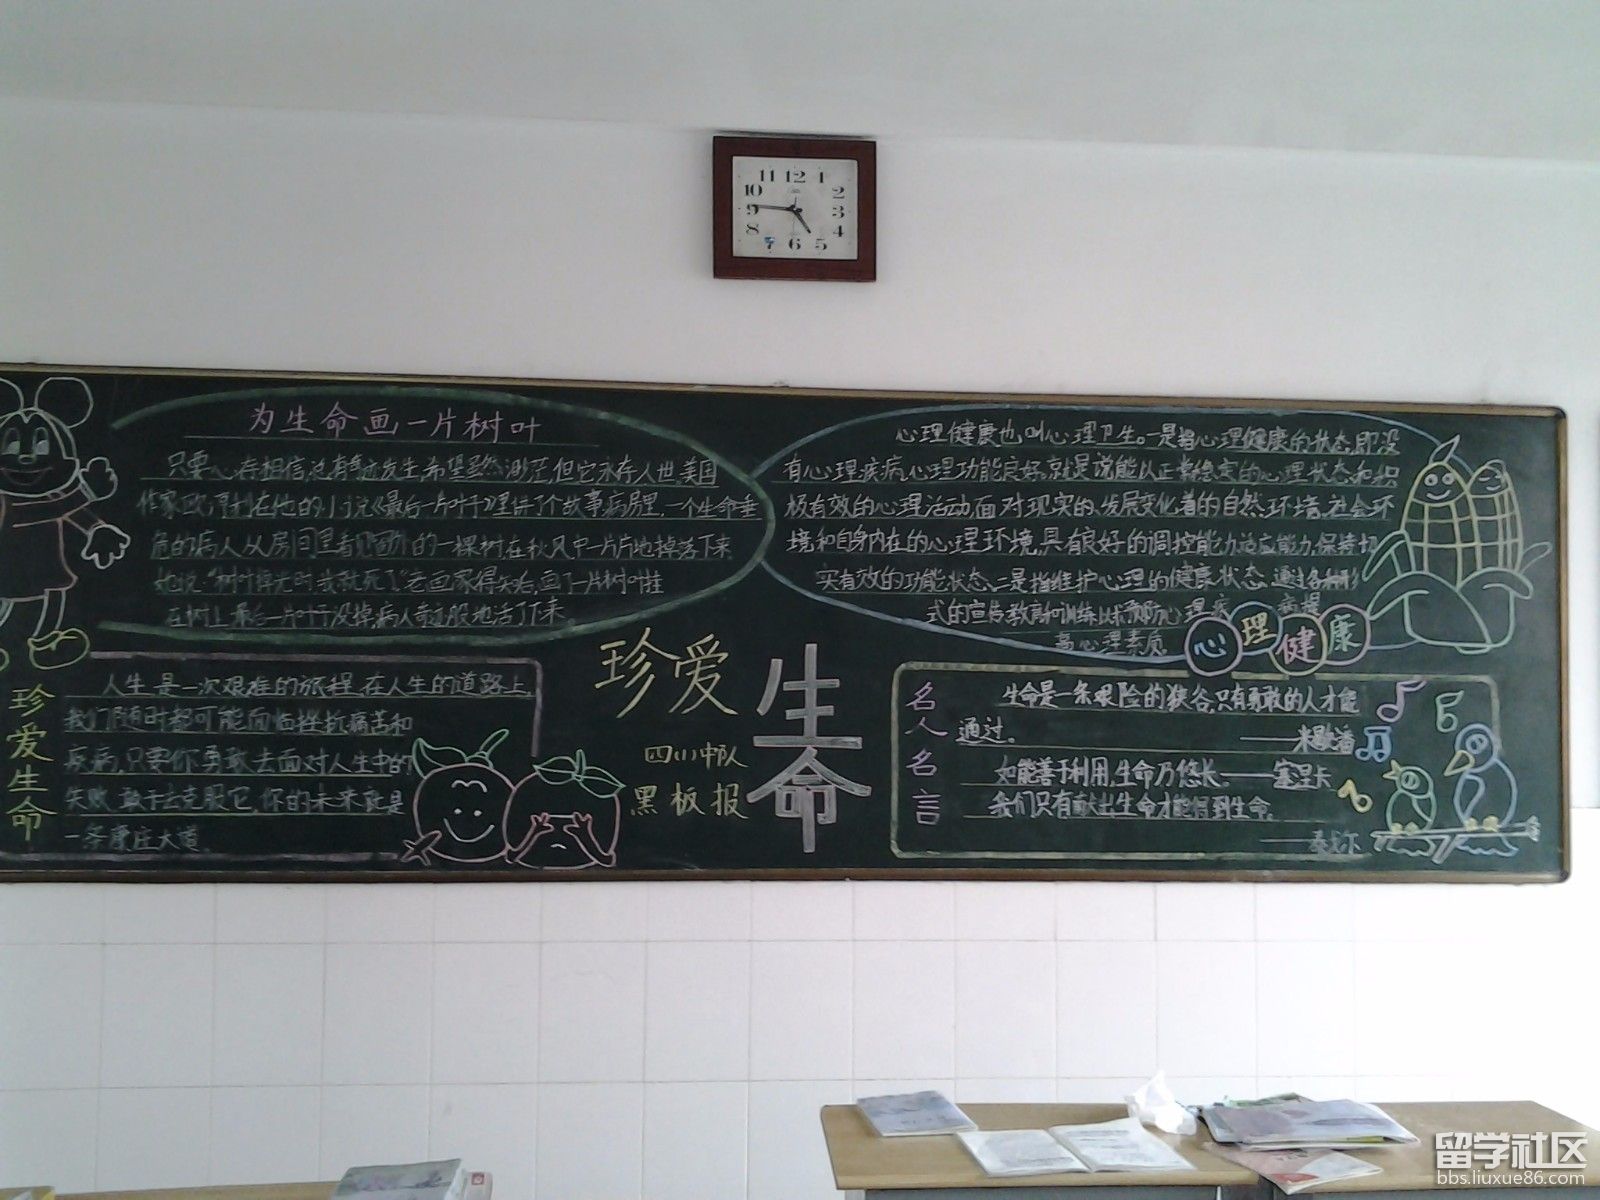 11 12 1
10 2
9 3
8 4
7 6 5
为生命画一片树叶
只要心存相信,总有奇迹发生,希望虽然渺茫,但它永存人世,美国
作家欧亨利在他的小说《最后一片叶子》里讲了个故事,病房里,一个生命垂
危的病人从房间里看见窗外的一棵树在秋风中一片片地掉落下来
她说:"树叶掉光时我就死了"老画家得知后,画了一片树叶挂
在树上最后一片叶子没掉,病人奇迹般地活了下来。
心理健康也叫心理卫生。一是指心理健康的状态,即没
有心理疾病,心理功能良好,就是说能以正常稳定的心理状态和积
极有效的心理活动,面对现实的、发展变化着的自然环境,社会环
境和自身内在的心理环境,具有良好的调控能力,适应能力,保持切
实有效的功能状态、二是指维护心理的健康状态,通过各种形
式的宣传教育和训练以求预防心理疾病,提
高心理素质。
心理健康
珍爱生命
人生是一次艰难的旅程,在人生的道路上,
我们随时都可能面临挫折痛苦和
疾病,只要你勇敢去面对人生中的
失败,敢于去克服它,你的未来就是
一条康庄大道。
珍爱
生命
四(1)中队
黑板报
名人名言
生命是一条艰险的狭谷,只有勇敢的人才能
通过。——米歇潘
如能善于利用,生命乃悠长。——塞涅卡
我们只有献出生命才能得到生命。
——泰戈尔
留学社区
bbs.liuxue86.com